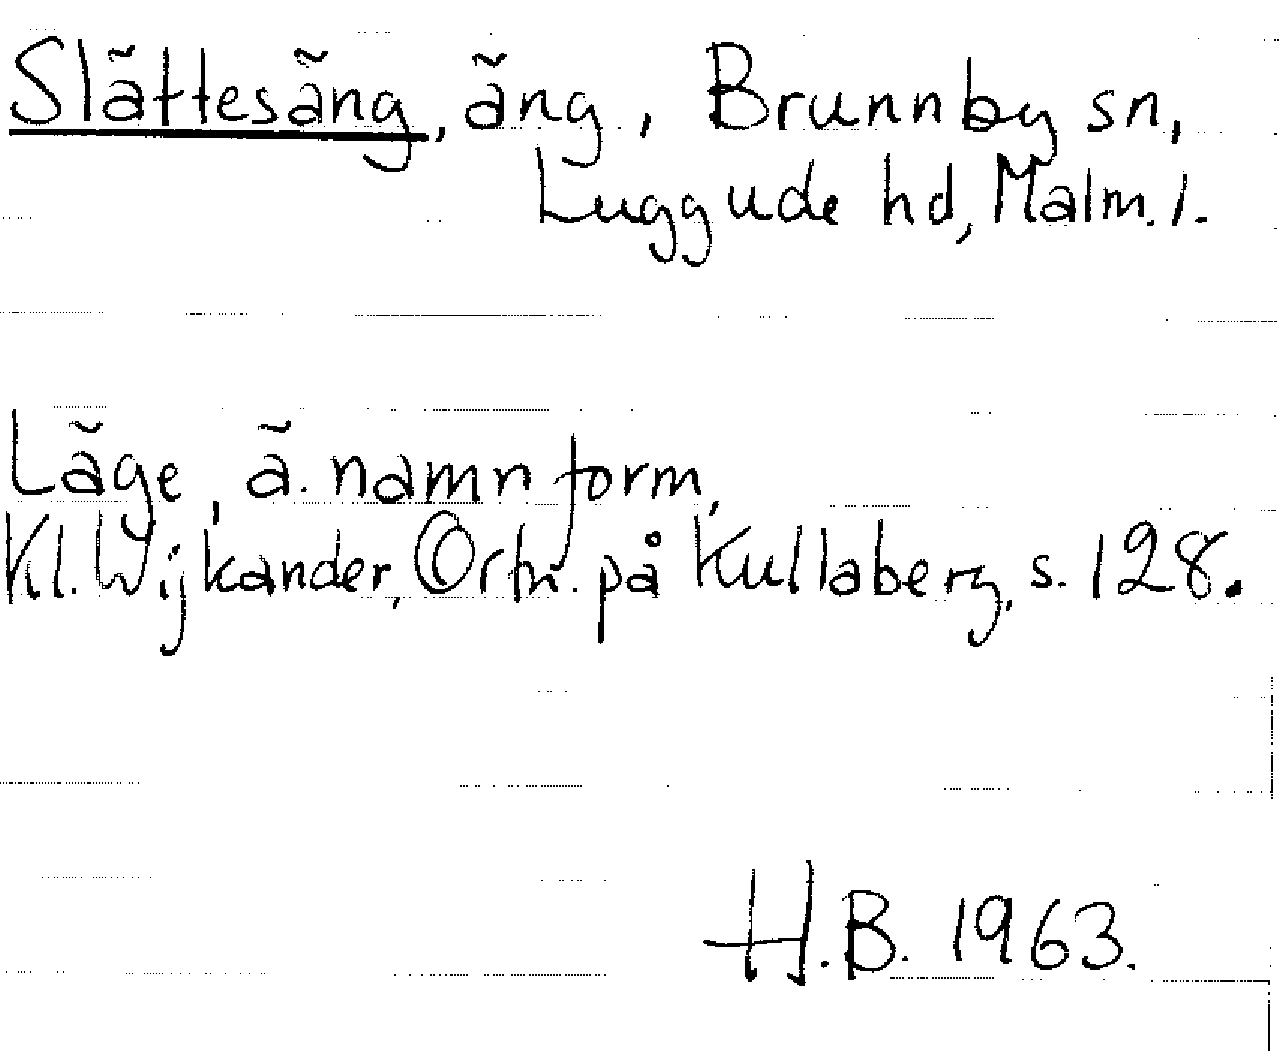 Slättesäng, äng, Brunnby sn,
Luggude hd, Malm. l.
Läge, ä. namnform,
Kl. Wijkander, Ortn. på Kullaberg, s. 128.
H.B. 1963.